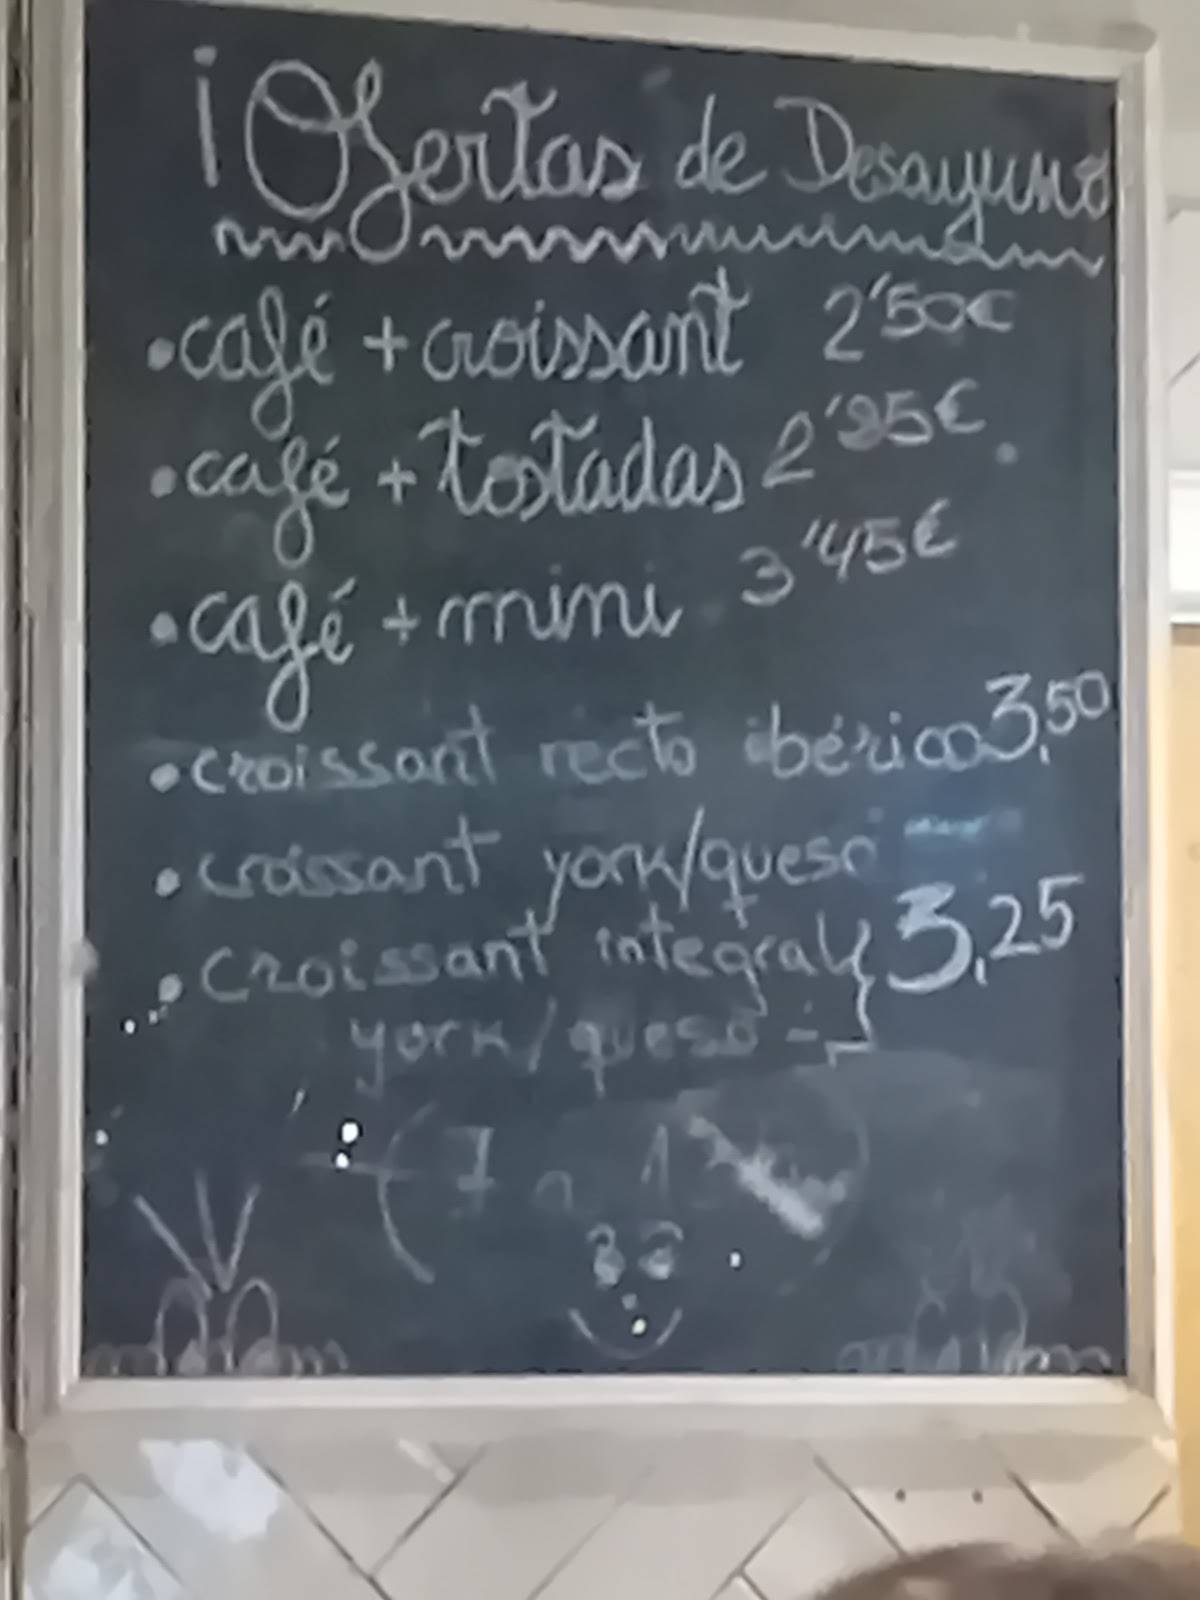 ¡Ofertas de Desayuno
•café + croissant 2'50€
•café + tostadas 2'85€.
•café + mini 3'45€
•croissant recto ibérico 3,50
•croissant york/queso
•croissant integral 3,25
york/queso
(7 a 1